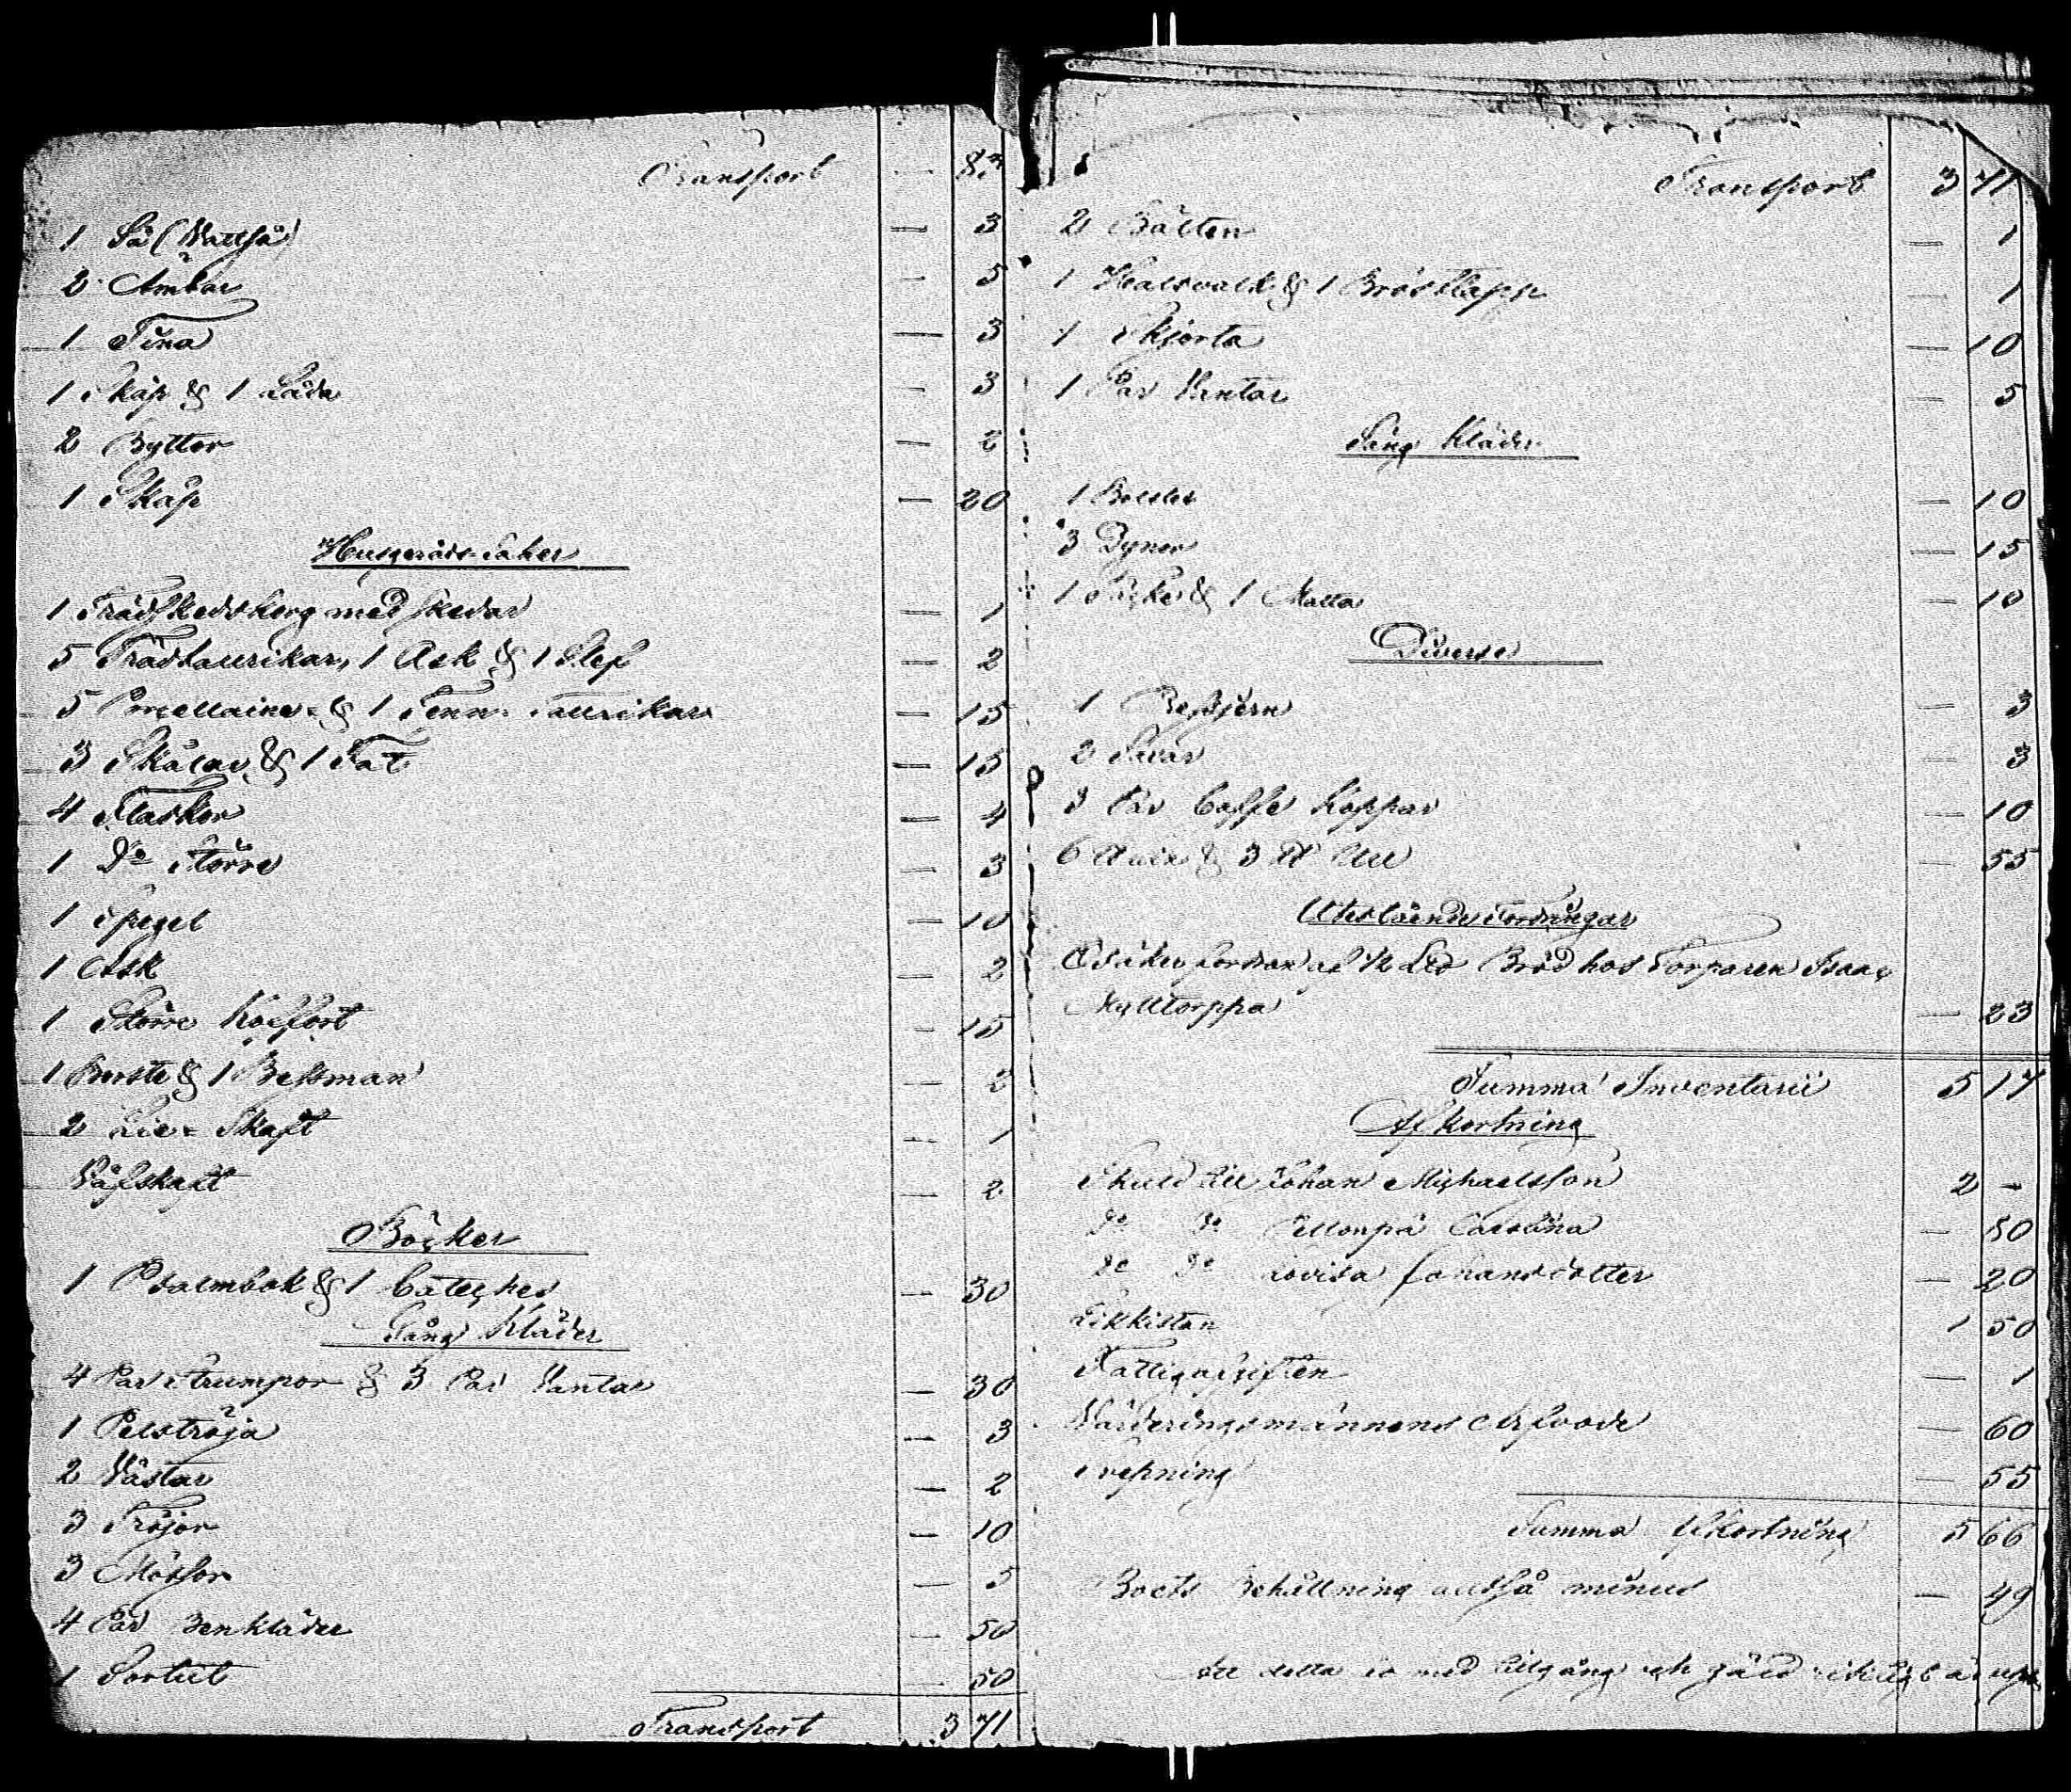 Transport — 83
1 Så (Vattså) — 3
2 Ämbar — 5
1 Tina — 3
1 Skåp & 1 Låda — 3
2 Byttor — 2
1 Skåp — 20
Husgeråds Saker
1 Trädskedskorg med skedar — 1
5 Trädtallrikar, 1 Ask & 1 Slef — 2
5 Porcellaine- & 1 Tenn- tallrikar — 15
3 Skålar & 1 Fat — 15
4 Flaskor — 4
1 Do Större — 3
1 Spegel — 10
1 Ask — 2
1 Större Koffort — 15
1 Borste & 1 Bessman — 2
2 Lie- Skaft — 1
Väfskaft — 2
Böcker
1 Psalmbok & 1 Cateches — 30
Gång Kläder
4 Par Strumpor & 3 Par Vantar — 30
1 Pelströja — 3
2 Västar — 2
3 Tröjor — 10
3 Mössor — 5
4 Par Benkläder — 50
1 Sortut — 50
Transport 3 71
Transport 3 71
2 Bälten — 1
1 Halsvalk & 1 Bröstlapp — 1
1 Skjorta — 10
1 Par Vantar — 5
Säng Kläder
1 Bolster — 10
3 Dynor — 15
1 Täcke & 1 Matta — 10
Diverse
1 — 3
2 — 3
3 Par Caffe Koppar — 10
6 & 3 ℔ Ull — 55
Utestående Fordringar
Osäker fordran af ½ Bröd hos Torparen Isaac
Mylltorppa — 23
Summa Inventarii 5 17
Afkortning
Skuld till Johan Michaelsson 2 —
Do Do Carolina — 50
Do Do Lovisa Johansdotter — 20
Likkistan 1 50
Fattigafgiften — 1
Värderingsmännens Arfvode — 60
— 55
Summa Afkortning 5 66
Boets Behållning alltså minus — 49
Att detta är med tillgång och gäld riktigt är upp